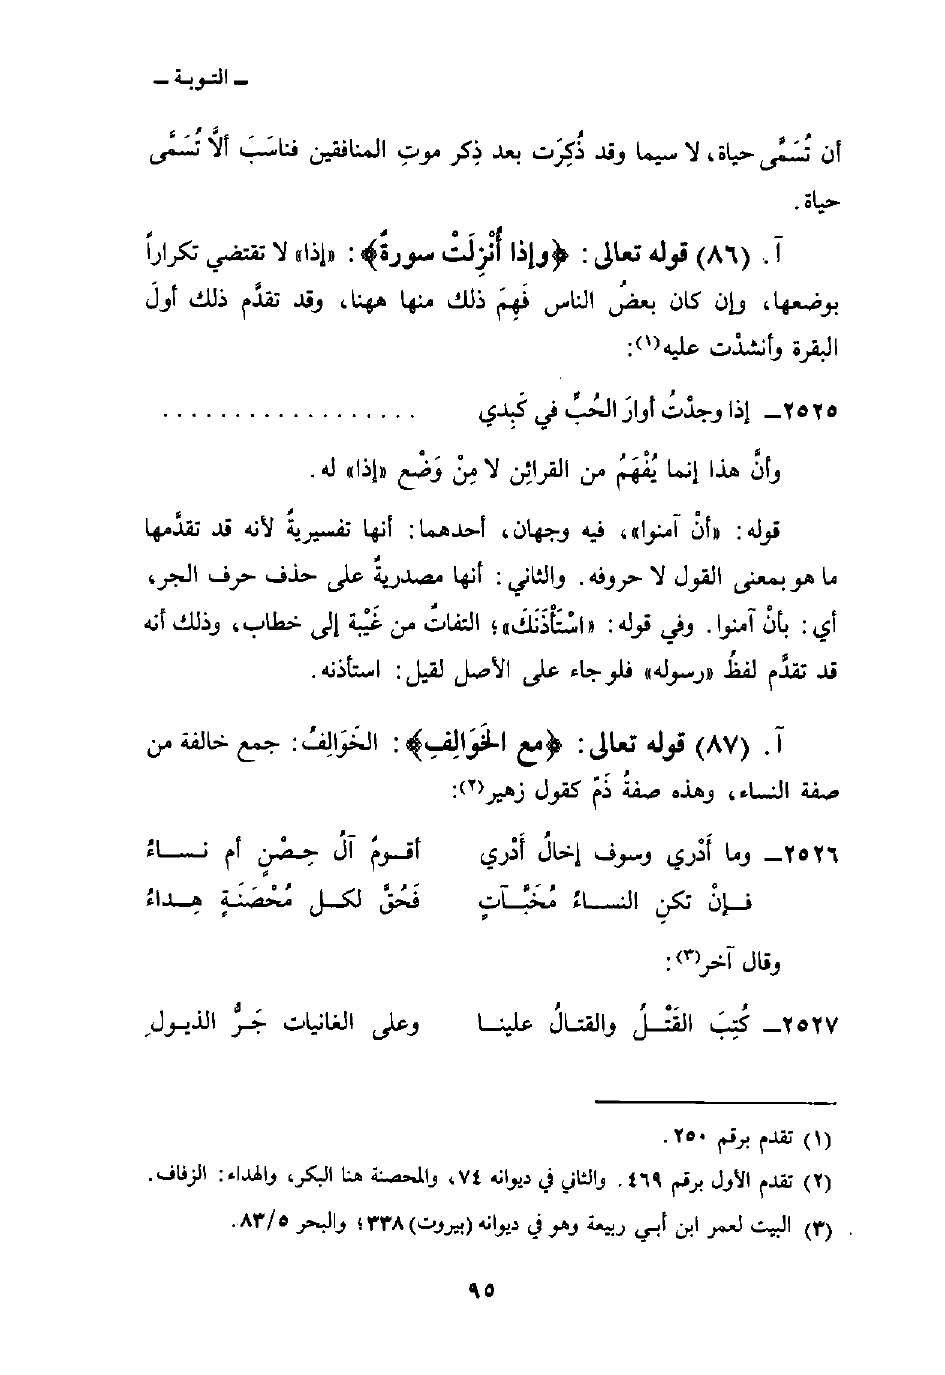 ـ التوبة ـ
أن تُسَمَّى حياة، لا سيما وقد ذُكِرَت بعد ذِكر موتِ المنافقين فناسَبَ ألاَّ تُسَمَّى
حياة.
آ. (٨٦) قوله تعالى: ﴿وإذا أُنْزِلَتْ سورةٌ﴾: «إذا» لا تقتضي تكراراً
بوضعها، وإن كان بعضُ الناس فَهِمَ ذلك منها ههنا، وقد تقدَّم ذلك أولَ
البقرة وأنشدْت عليه(١):
٢٥٢٥ـ إذا وجدْتُ أوارَ الحُبِّ في كَبِدي ..................
وأنَّ هذا إنما يُفْهَمُ من القرائن لا مِنْ وَضْعِ «إذا» له.
قوله: «أنْ آمنوا»، فيه وجهان، أحدهما: أنها تفسيريةٌ لأنه قد تقدَّمها
ما هو بمعنى القول لا حروفه. والثاني: أنها مصدريةٌ على حذف حرف الجر،
أي: بأنْ آمنوا. وفي قوله: «اسْتَأْذَنَكَ»؛ التفاتٌ من غَيْبة إلى خطاب، وذلك أنه
قد تقدَّم لفظُ «رسوله» فلو جاء على الأصل لقيل: استأذنه.
آ. (٨٧) قوله تعالى: ﴿مع الخَوَالِفِ﴾: الخَوَالِفُ: جمع خالفة من
صفة النساء، وهذه صفةُ ذَمّ كقول زهير(٢):
٢٥٢٦ـ وما أَدْري وسوف إخالُ أَدْري أقومٌ آلُ حِصْنٍ أم نساءُ
فإنْ تكنِ النساءُ مُخَبَّآتٍ فَحُقَّ لكل مُحْصَنَةٍ هِداءُ
وقال آخر(٣):
٢٥٢٧ـ كُتِبَ القَتْلُ والقتالُ علينا وعلى الغانيات جَرُّ الذيولِ
(١) تقدم برقم ٢٥٠.
(٢) تقدم الأول برقم ٤٦٩. والثاني في ديوانه ٧٤، والمحصنة هنا البكر، والهداء: الزفاف.
(٣) البيت لعمر ابن أبي ربيعة وهو في ديوانه (بيروت) ٣٣٨؛ والبحر ٨٣/٥.
٩٥